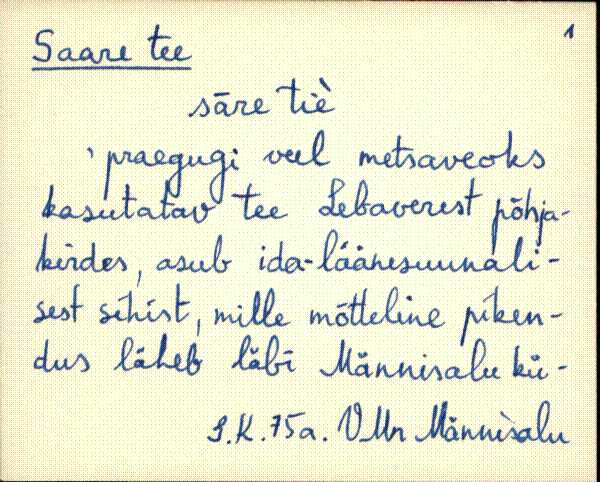 1
Saare tee
sāre tiè
' praegugi veel metsaveoks
kasutatav tee Lebaverest põhja-
kirdes, asub ida-läänesuunali-
sest sihist, mille mõtteline piken-
dus läheb läbi Männisalu kü-
S.K.75a. VMr Männisalu